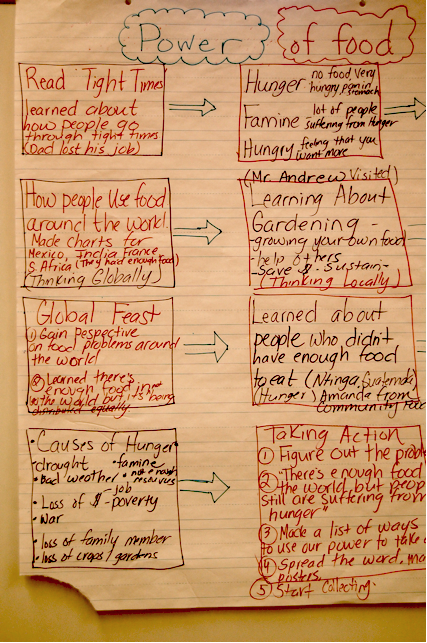 Power of food
Read Tight Times
learned about
how people go
through tight times
(Dad lost his job)
Hunger no food, very
hungry, pain in
stomach
Famine lot of people
suffering from hunger
Hungry feeling that you
want more
How people Use food
around the world.
Made charts for
Mexico, India, France,
S. Africa (They had enough food)
(Thinking Globally)
(Mr. Andrew Visited)
Learning About
Gardening -
-growing your own food
-help others
-Save $ - Sustain-
(Thinking Locally)
Global Feast
① Gain Pespective
on food problems around
the world
② Learned there's
enough food in
the world but it's being
distributed equally
Learned about
people who didn't
have enough food
to eat (Ntinga, Guatemala)
(Hunger) Amanda from
community food
• Causes of Hunger
drought • famine
• Bad weather • not enough
resources
• Loss of $ - job
- poverty
• war
• loss of family member
• loss of crops/gardens
Taking Action
① Figure out the
② "There's enough food
the world, but
still are suffering from
hunger"
③ Made a list of ways
to use our power to take
④ Spread the word,
posters
⑤ Start collecting.